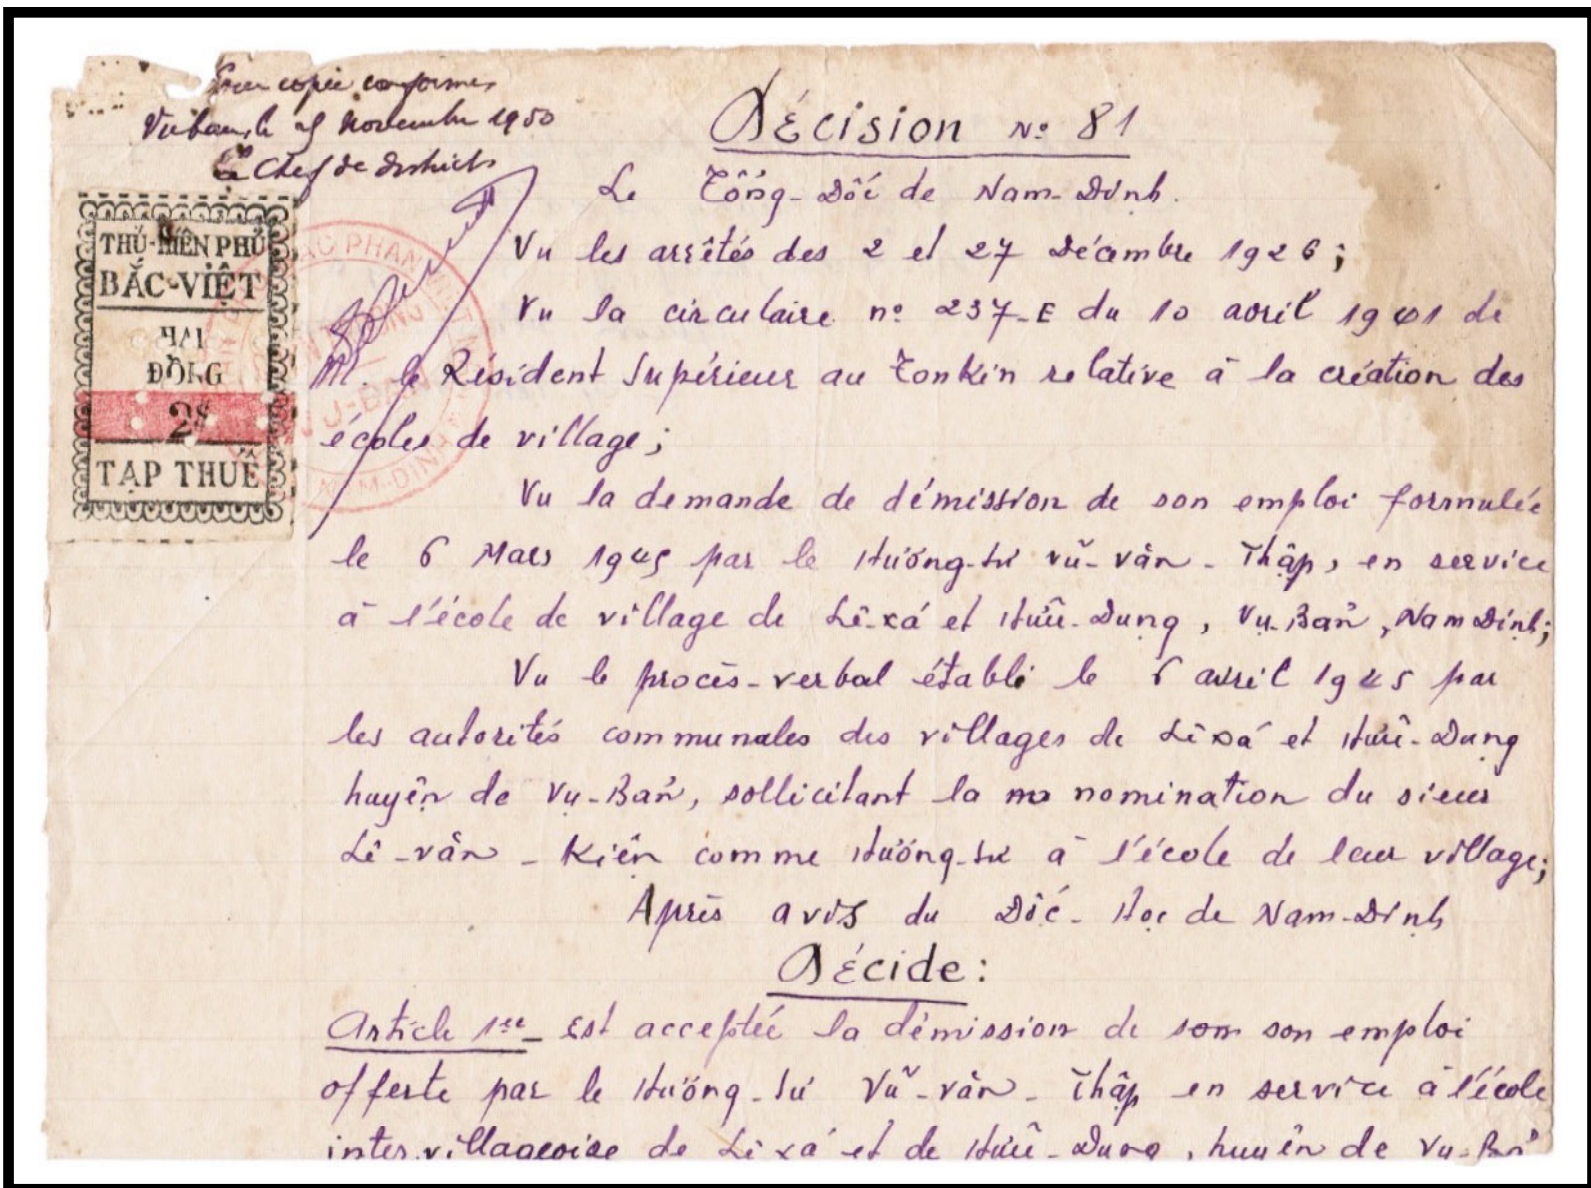 Pour copie conforme
Vuban, le 25 Novembre 1950
Le Chef de district
THỦ-HIẾN PHỦ
BẮC-VIỆT
HAI
ĐỒNG
2$
TẠP THUẾ
PHẦN VIỆT
NAM-ĐỊNH
Décision No 81
Le Tổng-Đốc de Nam-Định.
Vu les arrêtés des 2 et 27 Décembre 1926;
Vu la circulaire no 237-E du 10 avril 1941 de
M. le Résident Supérieur au Tonkin relative à la création des
écoles de village;
Vu la demande de démission de son emploi formulée
le 6 Mars 1945 par le Hương-sư Vũ-văn-Thập, en service
à l'école de village de Lê-xá et Hữu-Dụng, Vụ-Bản, Nam Định;
Vu le procès-verbal établi le 6 avril 1945 par
les autorités communales des villages de Lê xá et Hữu-Dụng
huyện de Vụ-Bản, sollicitant la no nomination du sieur
Lê-văn-Kiện comme Hương-sư à l'école de leur village;
Après avis du Đốc-Học de Nam-Định
Décide:
Article 1er - Est acceptée la démission de som son emploi
offerte par le Hương-sư Vũ-văn-Thập en service à l'école
intervillageoise de Lê xá et de Hữu-Dụng, huyện de Vụ-Bản